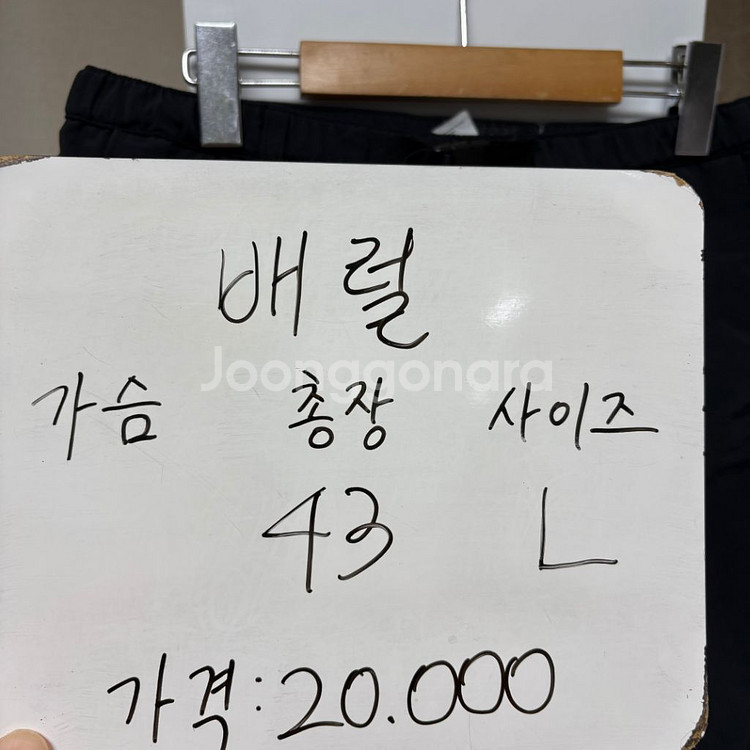 배럴
Joonggonara
가슴 총장 사이즈
43 L
가격:20.000